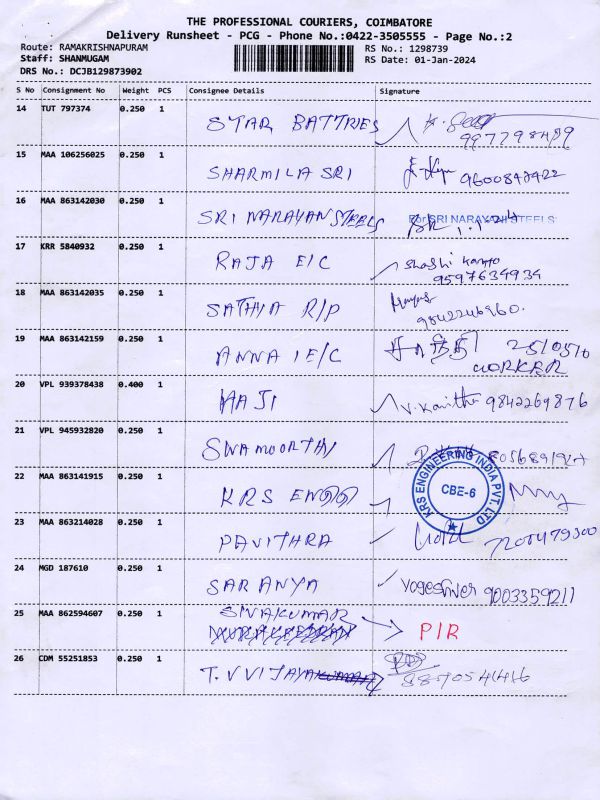 THE PROFESSIONAL COURIERS, COIMBATORE
Delivery Runsheet - PCG - Phone No.:0422-3505555 - Page No.:2
Route: RAMAKRISHNAPURAM RS No.: 1298739
Staff: SHANMUGAM RS Date: 01-Jan-2024
DRS No.: DCJB129873902
S No Consignment No Weight PCS Consignee Details Signature
14 TUT 797374 0.250 1 STAR BATTRIES
15 MAA 106256025 0.250 1 SHARMILA SRI 9600847422
16 MAA 863142030 0.250 1 SRI NARAYAN STEELS For SRI NARAYANI STEELS
17 KRR 5840932 0.250 1 RAJA E/C Shashi
9597634934
18 MAA 863142035 0.250 1 SATHIA R/P
9842246960.
19 MAA 863142159 0.250 1 ANNA I E/C 25/05/0
WORKER
20 VPL 939378438 0.400 1 HAJI V. Kavitha 9842269876
21 VPL 945932820 0.250 1 SIVAMOORTHY
22 MAA 863141915 0.250 1 KRS ENGG KRS ENGINEERING INDIA PVT. LTD
CBE-6
23 MAA 863214028 0.250 1 PAVITHRA
24 MGD 187610 0.250 1 SARANYA Yogeshwer 9003359211
25 MAA 862594607 0.250 1 SIVAKUMAR P/R
26 CDM 55251853 0.250 1 T. V VIJAYA